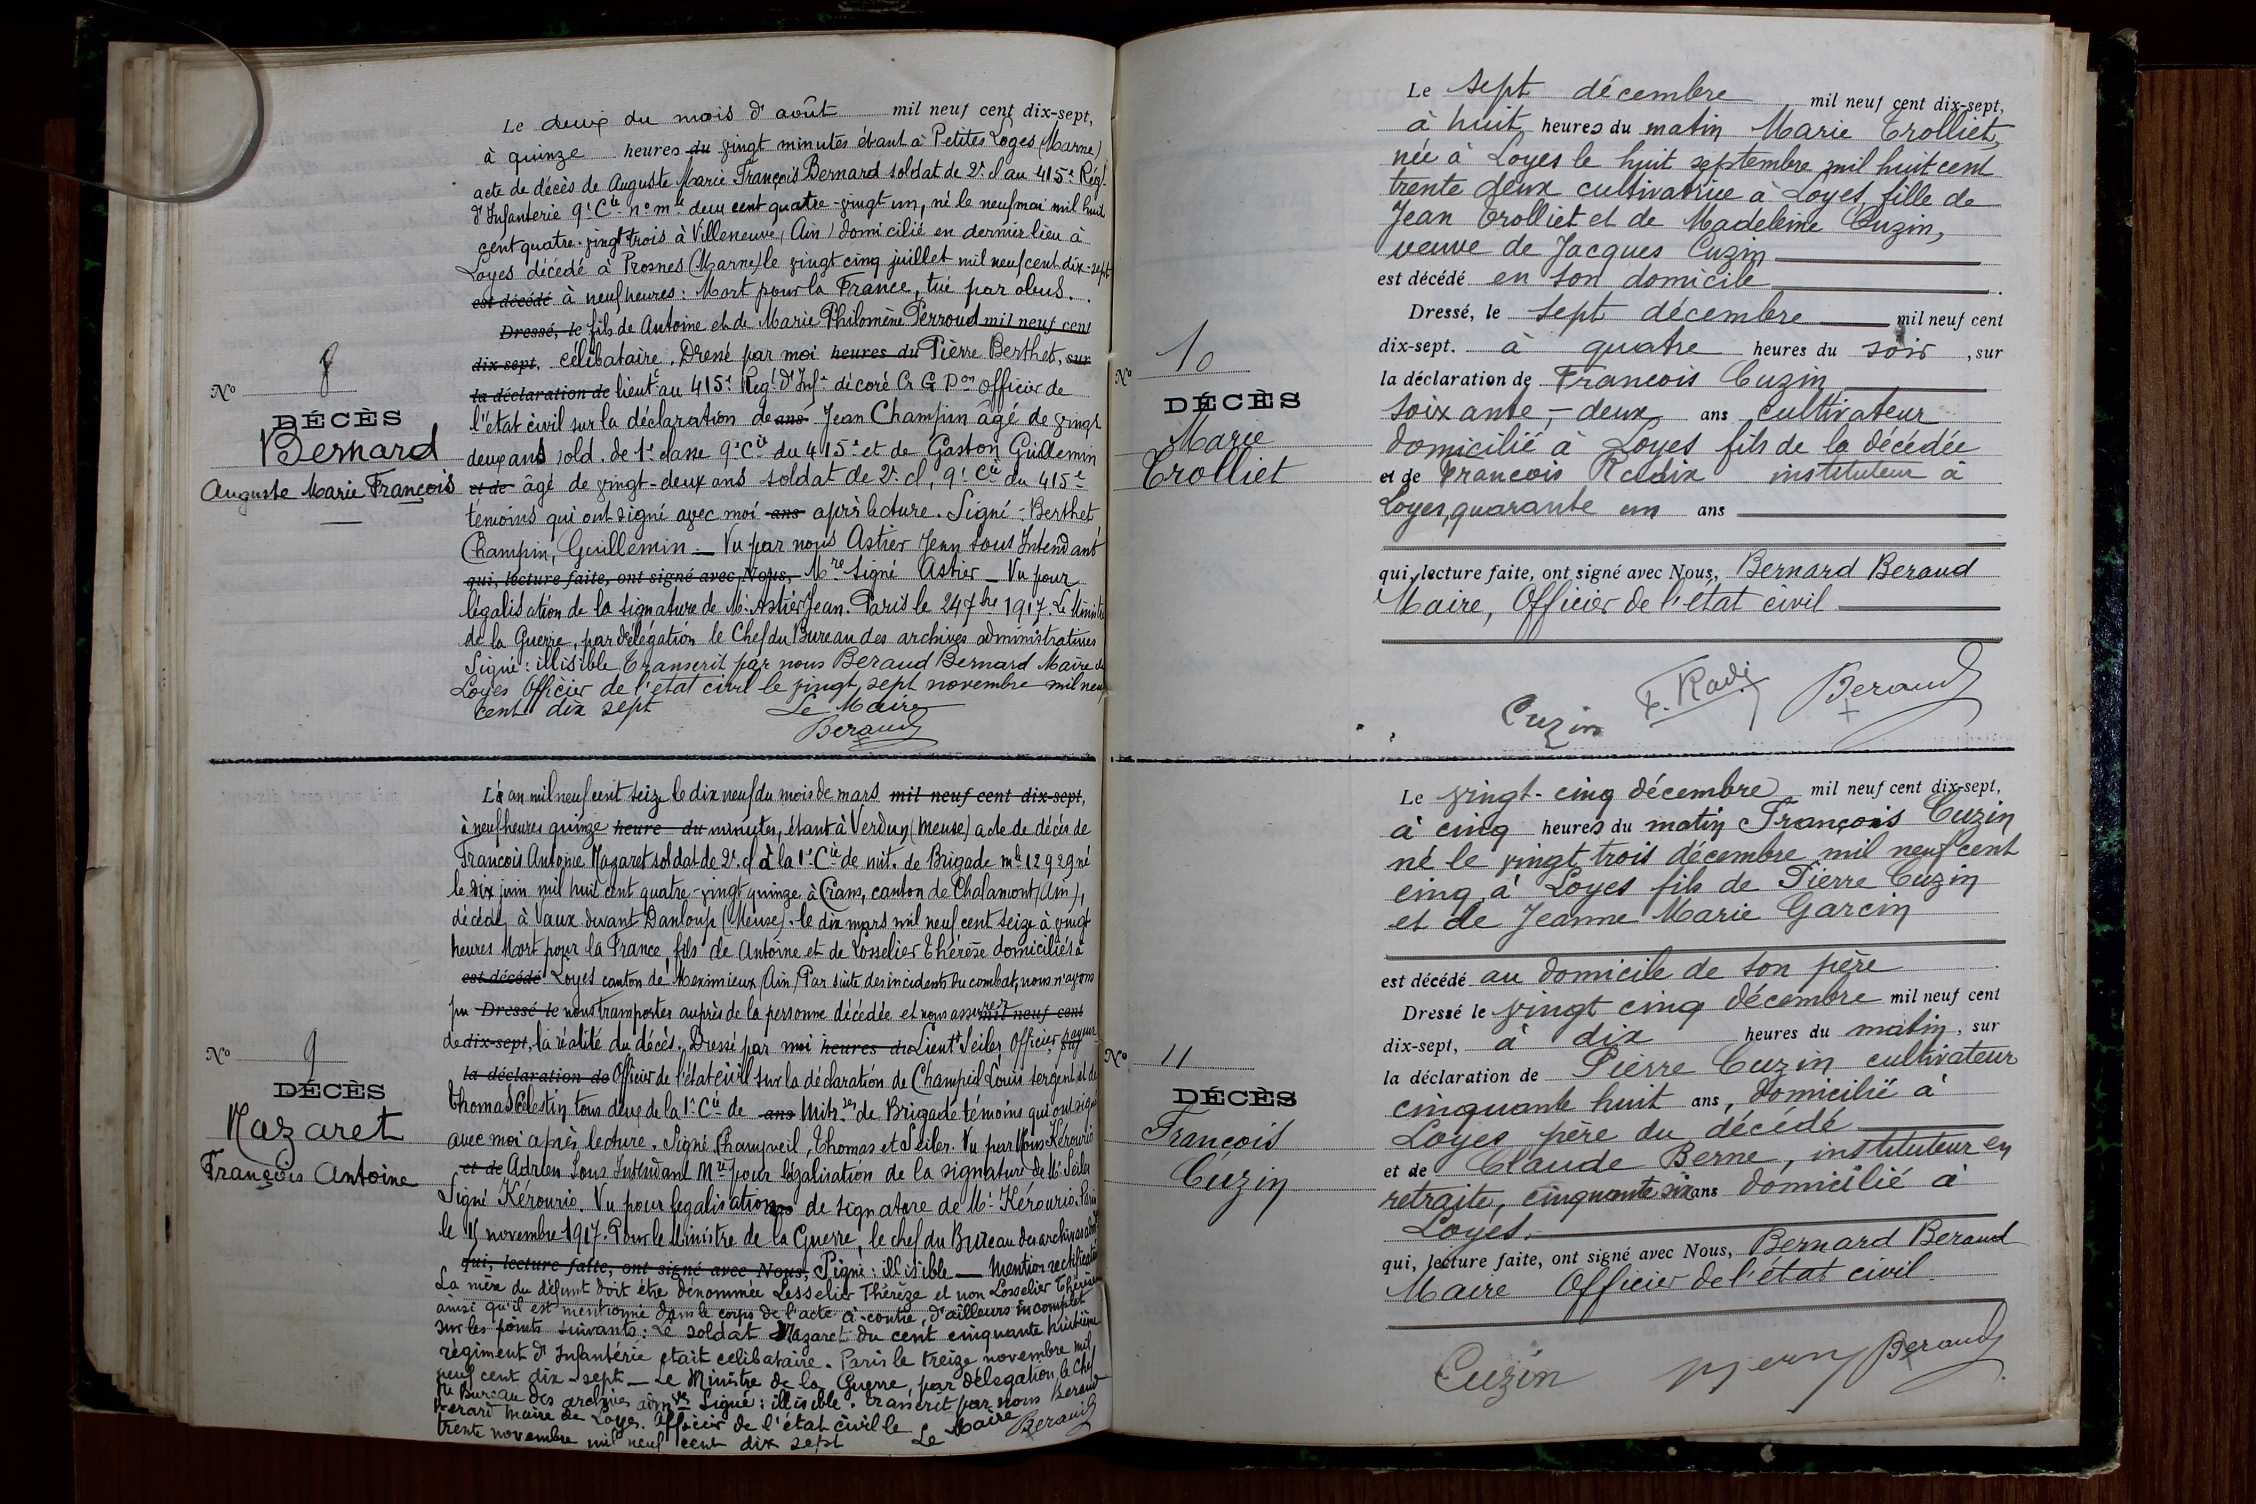 Le deux du mois d'août mil neuf cent dix-sept,
à quinze heures du vingt minutes étant à Petites Loges (Marne)
acte de décès de Auguste Marie François Bernard soldat de 2e cl au 415e Régt
d'Infanterie 9e Cie no mle deux cent quatre-vingt un, né le neuf mai mil huit
cent quatre-vingt trois à Villeneuve (Ain) domicilié en dernier lieu à
Loyes décédé à Prosnes (Marne) le vingt cinq juillet mil neuf cent dix-sept
est décédé à neuf heures: Mort pour la France, tué par obus.
Dressé, le fils de Antoine et de Marie Philomène Perroud mil neuf cent
dix-sept. célibataire. Dressé par moi heures du Pierre Berthet, sur
la déclaration de lieutt au 415e Regt d'Infie décoré Cx G Don officier de
l'état civil sur la déclaration de ans Jean Champin âgé de vingt
deux ans sold. de 1e classe 9e Cie du 415e et de Gaston Guillemin
et de âgé de vingt-deux ans soldat de 2e cl, 9e Cie du 415e
témoins qui ont signé avec moi ans après lecture. Signé: Berthet
Champin, Guillemin. — Vu par nous Astier Jean sous Intendant
qui, lecture faite, ont signé avec Nous, Mre Signé Astier — Vu pour
légalisation de la signature de Mr Astier Jean. Paris le 24 7bre 1917. Le Ministre
de la Guerre, par délégation le Chef du Bureau des archives administratives
Signé: illisible Transcrit par nous Beraud Bernard Maire de
Loyes Officier de l'état civil le vingt sept novembre mil neuf
cent dix sept Le Maire
Beraud
No 8
DÉCÈS
Bernard
Auguste Marie François
L'an mil neuf cent seize le dix neuf du mois de mars mil neuf cent dix-sept,
à neuf heures quinze heure du minutes, étant à Verdun (Meuse) acte de décès de
François Antoine Nazaret soldat de 2e cl à la 1e Cie de mit. de Brigade mle 12929 né
le dix juin mil huit cent quatre-vingt quinze à Crans, canton de Chalamont (Ain),
décédé à Vaux devant Damloup (Meuse). le dix mars mil neuf cent seize à vingt
heures Mort pour la France, fils de Antoine et de Losselier Thérèse domiciliés à
est décédé Loyes canton de Meximieux (Ain) Par suite des incidents du combat, nous n'avons
pu Dressé le nous transporter auprès de la personne décédée et nous assurer mil neuf cent
de dix-sept, la réalité du décès. Dressé par moi heures du Lieutt Seiler Officier payeur sur
la déclaration de Officier de l'état civil sur la déclaration de Champeil Louis sergent et de
Thomas Célestin tous deux de la 1e Cie de ans Mitrses de Brigade témoins qui ont signé
avec moi après lecture. Signé Champeil, Thomas et Seiler. Vu par Nous Kérourio
et de Adrien Sous Intendant Mre pour légalisation de la signature de Mr Seiler
Signé Kérourio. Vu pour légalisation ans de signature de Mr Kérourio. Paris
le 15 novembre 1917. Pour le Ministre de la Guerre, le chef du Bureau des archives admves
qui, lecture faite, ont signé avec Nous, Signé: illisible — Mention rectificative
La mère du défunt doit être dénommée Lesselier Thérèze et non Losselier Thérèse
ainsi qu'il est mentionné dans le corps de l'acte ci-contre, d'ailleurs incomplet
sur les points suivants: Le soldat Nazaret du cent cinquante huitième
régiment d'Infantérie était célibataire. Paris le treize novembre mil
neuf cent dix sept — Le Ministre de la Guerre, par délégation, le Chef
du Bureau des archives admves Signé: illisible. transcrit par nous Beraud
Bernard Maire de Loyes. Officier de l'état civil le
trente novembre mil neuf cent dix sept Le Maire Beraud
No 9
DÉCÈS
Nazaret
François Antoine
Le sept décembre mil neuf cent dix-sept,
à huit heures du matin Marie Trolliet,
née à Loyes le huit septembre mil huit cent
trente deux cultivatrice à Loyes, fille de
Jean Trolliet et de Madeleine Cuzin,
veuve de Jacques Cuzin
est décédé en son domicile
Dressé, le sept décembre mil neuf cent
dix-sept. à quatre heures du soir, sur
la déclaration de François Cuzin
soixante-deux ans cultivateur
domicilié à Loyes fils de la décédée
et de François Radix instituteur à
Loyes, quarante un ans
qui, lecture faite, ont signé avec Nous, Bernard Beraud
Maire, Officier de l'état civil
Cuzin F. Radi Beraud
No 10
DÉCÈS
Marie
Trolliet
Le vingt-cinq décembre mil neuf cent dix-sept,
à cinq heures du matin François Cuzin
né le vingt trois décembre mil neuf cent
cinq à Loyes fils de Pierre Cuzin
et de Jeanne Marie Garcin
est décédé au domicile de son père
Dressé le vingt cinq décembre mil neuf cent
dix-sept, à dix heures du matin, sur
la déclaration de Pierre Cuzin cultivateur
cinquante huit ans, domicilié à
Loyes père du décédé
et de Claude Berne, instituteur en
retraite, cinquante six ans domicilié à
Loyes.
qui, lecture faite, ont signé avec Nous, Bernard Beraud
Maire Officier de l'état civil
Cuzin Beraud
No 11
DÉCÈS
François
Cuzin